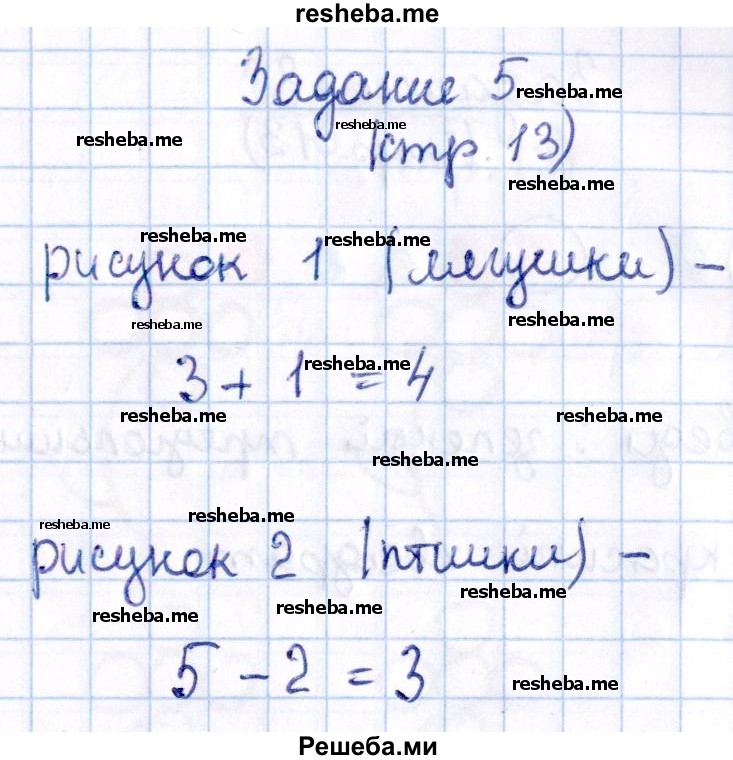 resheba.me
Задание 5 resheba.me
resheba.me
resheba.me
(стр. 13)
resheba.me
resheba.me
resheba.me
рисунок 1 (лягушки) -
resheba.me
resheba.me
3 + 1 = 4
resheba.me
resheba.me
resheba.me
resheba.me
resheba.me
resheba.me
рисунок 2 (птички) -
resheba.me
resheba.me
resheba.me
5 - 2 = 3
resheba.me
Решеба.ми